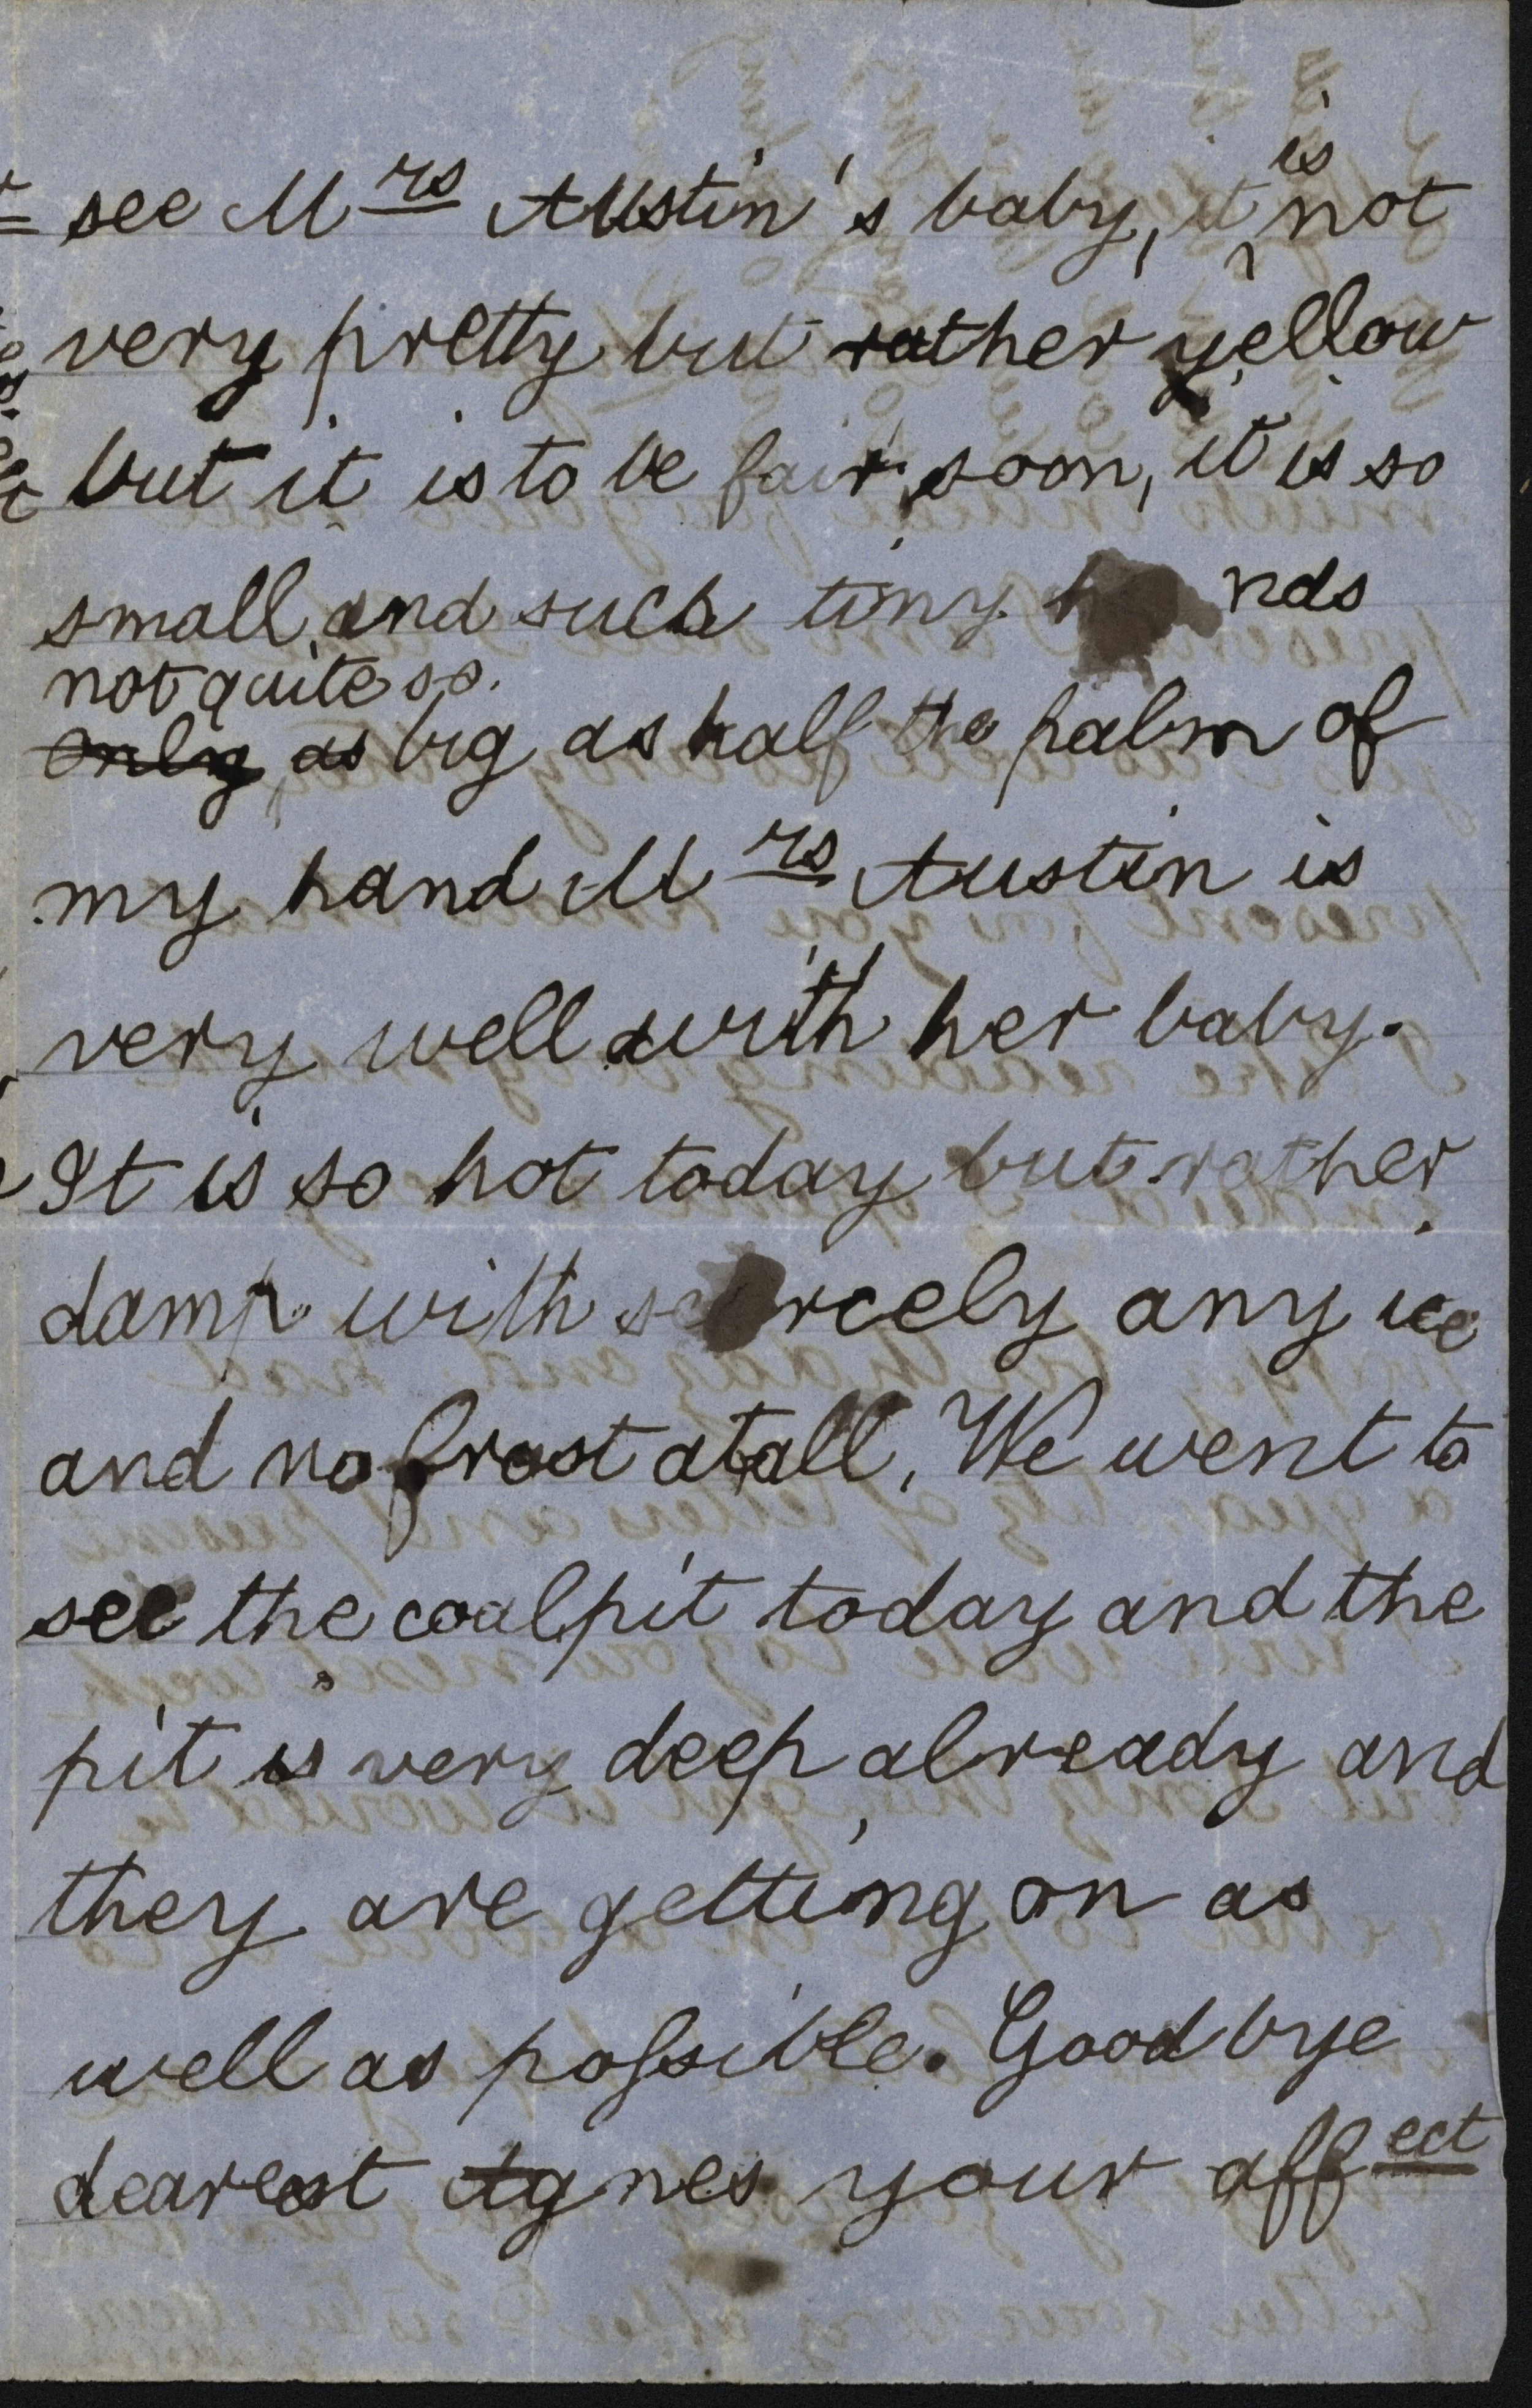 see Mrs Austin's baby, it is not
very pretty but rather yellow
but it is to be fair soon, it is so
small and such tiny hands
not quite so
only as big as half the palm of
my hand Mrs Austin is
very well with her baby.
It is so hot today but rather
damp with scarcely any ice
and no frost atall. We went to
see the coalpit today and the
pit is very deep already and
they are getting on as
well as poſsible. Good bye
dearest Agnes your affect